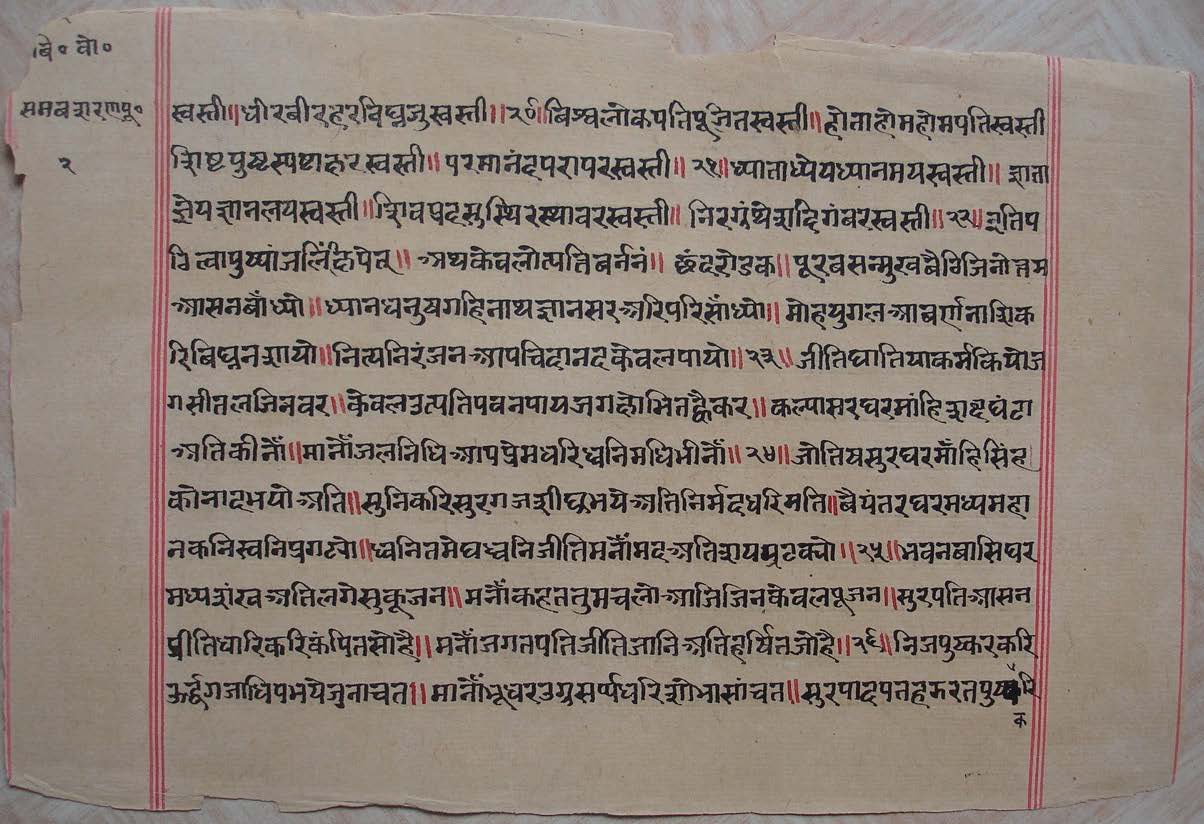 बि॰ वो॰
समवशरणपू॰
२
स्वस्ती॥ धीरवीरहरविघ्नजुस्वस्ती॥ २०॥ विश्वलोकपतिपूजितस्वस्ती॥ होताहोमहोमपतिस्वस्ती
शिष्टपुष्टस्पष्टाकरस्वस्ती॥ परमानंदपरापरस्वस्ती॥ २१॥ ध्याताध्येयध्यानमयस्वस्ती॥ ज्ञाता
ज्ञेयज्ञानलयस्वस्ती॥ शिवप्रदसुस्थिरस्थावरस्वस्ती॥ निरग्रंथेशदिगंबरस्वस्ती॥ २२॥ इतिप
ठित्वापुष्पांजलिंक्षिपेत्॥ अथकेवलोत्पतिवर्ननं॥ छंदरोडक॥ पूरवसन्मुखवैठिजिनोत्तम
आसनबाँध्यो॥ ध्यानधनुषगहिनाथज्ञानसरअरिपरिसाँध्यो॥ मोहयुगलआवर्णनाशिक
रिविघ्ननशायो॥ नित्यनिरंजनआपचिदानदकेवलपायो॥ २३॥ जीतिघातियाकर्मकियोज
गसीतलजिनवर॥ केवलउत्पतिपवनपायजगक्षोभितह्वैकर॥ कल्पासरघरमांहिशष्टघंटा
अतिकीनोँ॥ मानोँजलनिधिआपप्रेमधरिध्वनिमधिभीनोँ॥ २४॥ जोतिषसुरघरमाँहिसिंह
कोनादभयोअति॥ सुनिकरिसुरगजशीघ्रभयेअतिनिर्मदधरिमति॥ वैयंतरघरमध्यमहा
नकनिस्वनिप्रगट्यो॥ ध्वनितमेघध्वनिजीतिमनोँमदअतिशय॥ २५॥ भवनवासिघर
मध्यशंखअतिलगेसुकूजन॥ मनोँकहततुमचलोआजिजिनकेवलपूजन॥ सुरपतिआसन
प्रीतिधारिकरिकंपितसोहै॥ मनोँजगतपतिजीतिजानिअतिहर्षितजोहै॥ २६॥ निजपुष्करकरि
ऊर्द्धगजाधिपभयेजुनाचत॥ मानोँभूधरउग्रसर्प्पधरिशोभासांचत॥ सुरपादपतहझरतपुष्परि
क